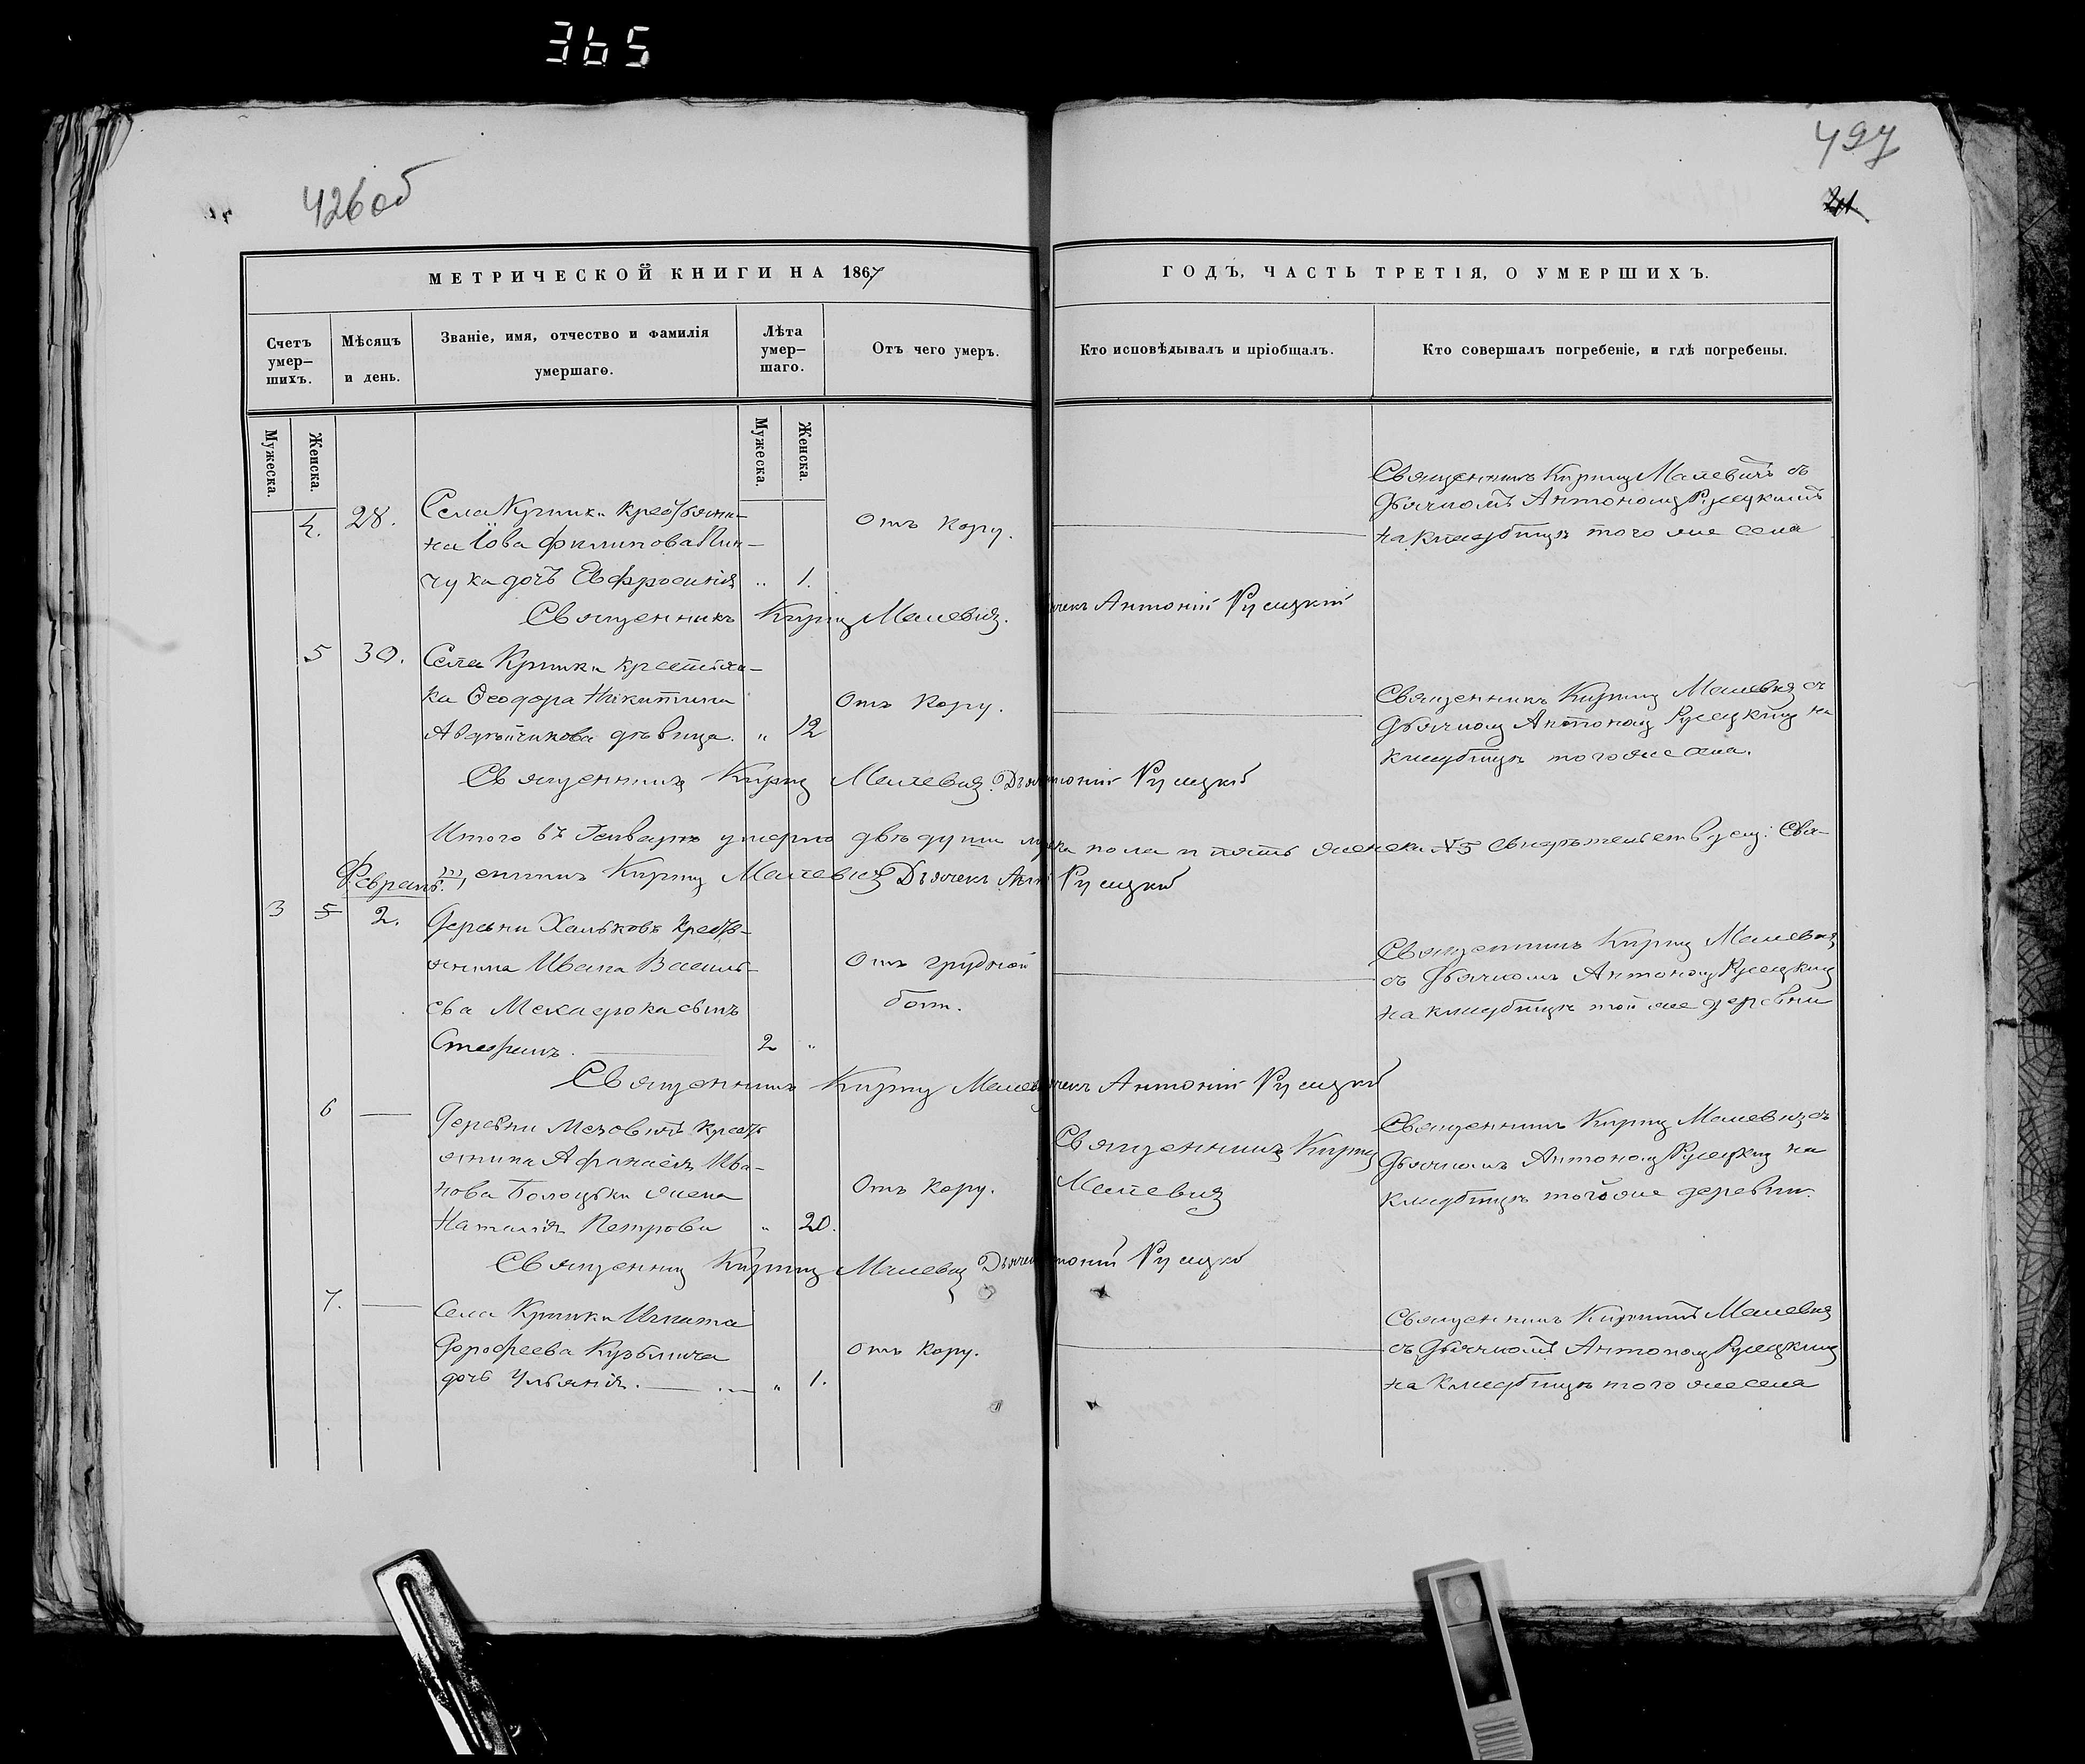 365
426об
497
21.
МЕТРИЧЕСКОЙ КНИГИ НА 1867
ГОДЪ, ЧАСТЬ ТРЕТІЯ, О УМЕРШИХЪ.
Счетъ умер-
шихъ.
Мѣсяцъ
и день.
Званіе, имя, отчество и фамилія
умершаго.
Лѣта
умер-
шаго.
Отъ чего умеръ.
Кто исповѣдывалъ и пріобщалъ.
Кто совершалъ погребеніе, и гдѣ погребены.
Мужеска.
Женска.
Мужеска.
Женска.
4. 28.
Села Крюки крестьяни-
на Іова Филипова Пин-
чука дочь Евфросинія „ 1.
Отъ кору.
Священникъ Кирилъ Малевичъ съ
Дьячкомъ Антономъ Русецкимъ
на кладбищѣ того же села
Священникъ Кирилъ Малевичъ. Антоній Русецкій
5 30.
Села Крюки крестьян-
ка Ѳеодора Никитина
Авдѣйчикова дѣвица. „ 12
Отъ кору.
Священникъ Кирилъ Малевичъ съ
Дьячкомъ Антономъ Русецкимъ на
кладбищѣ того же села.
Священникъ Кирилъ Малевичъ. Русецкій
Итого въ Генварѣ умерло двѣ души пола и пять женска №5 Свидѣтельствуемъ: Свя-
щенникъ Кирилъ Малевичъ Дьячекъ Русецкій
Февраль.
3 5 2.
Деревни Хальковъ крестья-
янина Ивана Василь-
ева сынъ
Стефанъ. 2 „
Отъ грудной
бол.
Священникъ Кирилъ Малевичъ
съ Дьячкомъ Антономъ Русецкимъ
на кладбищѣ той же деревни
Священникъ Кирилъ Антоній Русецкій
6 —
Деревни крестья
янина Афанасія Ива-
нова жена
Наталія Петрова „ 20.
Отъ кору.
Священникъ Кирилъ
Малевичъ
Священникъ Кирилъ Малевичъ съ
Дьячкомъ Антономъ Русецкимъ на
кладбищѣ той же деревни.
Священникъ Кирилъ Малевичъ Русецкій
7. —
Села Крюки Игната
Дорофеева Кузьмича
дочь Ульянія. „ 1.
Отъ кору.
Священникъ Кирилъ Малевичъ
съ Дьячкомъ Антономъ Русецкимъ
на кладбищѣ того же села